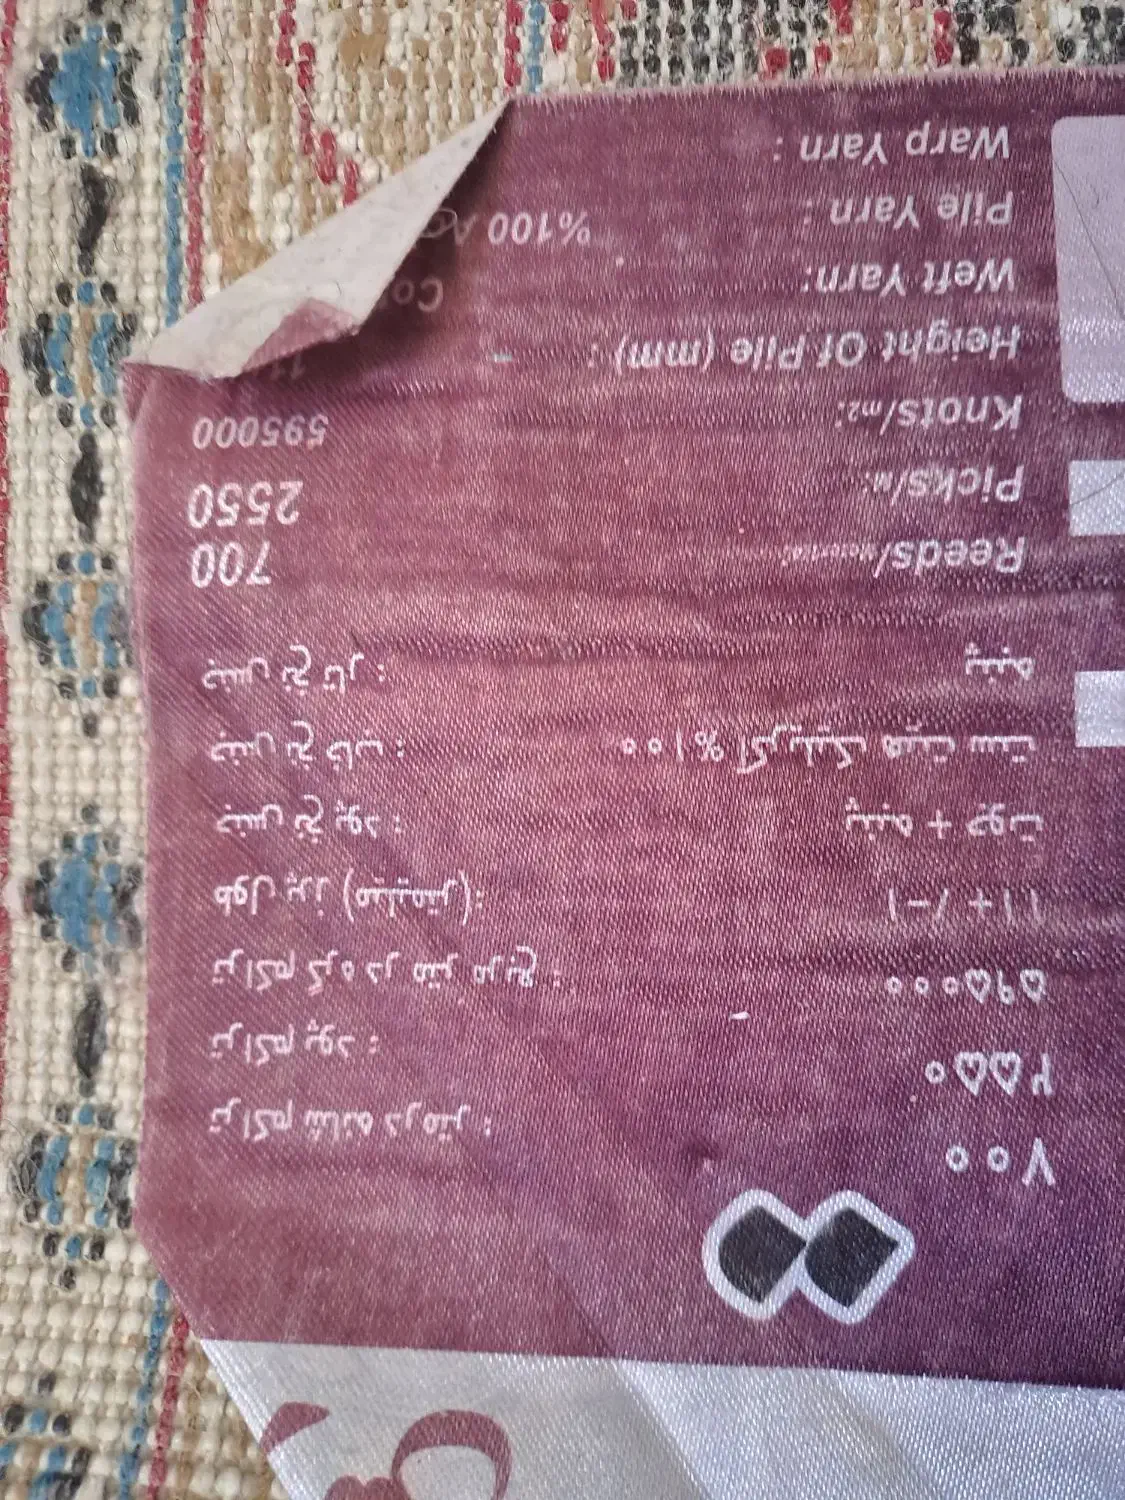 تراکم شانه در متر : ۷۰۰
تراکم پود : ۲۵۵۰
تراکم گره در متر مربع : ۵۹۵۰۰۰
طول پرز (میلیمتر): ۱۱ + / -۱
جنس نخ پود : پنبه + جوت
جنس نخ خاب : ۱۰۰% اکریلیک هیت ست
جنس نخ تار : پنبه
Reeds/meter: 700
Picks/M: 2550
Knots/m2: 595000
Height Of Pile (mm) :
Weft Yarn:
Pile Yarn : %100
Warp Yarn :